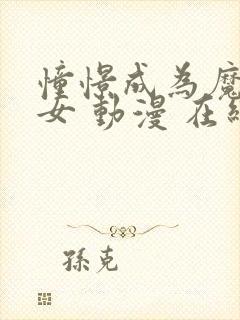 憧憬成為魔
女 動漫 在線
孫克